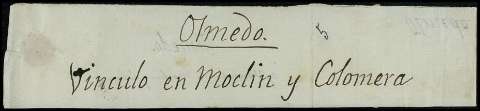 Olmedo.
5
Vinculo en Moclin y Colomera